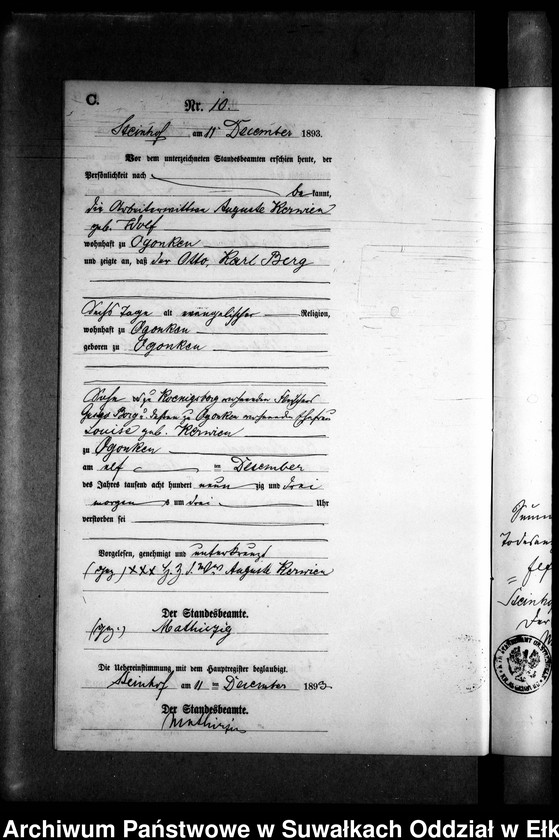 C.
Nr. 10.
Steinhof am 11 December 1893.
Vor dem unterzeichneten Standesbeamten erschien heute, der
Persönlichkeit nach
be kannt,
die Arbeiterwittwe Auguste Kerwien
geb. Wolf
wohnhaft zu Ogonken
und zeigte an, daß der Otto, Karl Berg
Sechs Tage alt evangelischer Religion,
wohnhaft zu Ogonken
geboren zu Ogonken
Sohn zu Koenigsberg
Berg zu Ogonken
Louise geb. Kerwien
zu Ogonken
am elf ten December
des Jahres tausend acht hundert neun zig und drei
morgens um drei Uhr
verstorben sei
Vorgelesen, genehmigt und unterkreuzt
(gez.) +++ Auguste Kerwien
Der Standesbeamte.
(gez.)
Die Uebereinstimmung mit dem Hauptregister beglaubigt.
Steinhof am 11 ten December 1893.
Der Standesbeamte.
Steinho
Der
Archiwum Państwowe w Suwałkach Oddział w Ełk